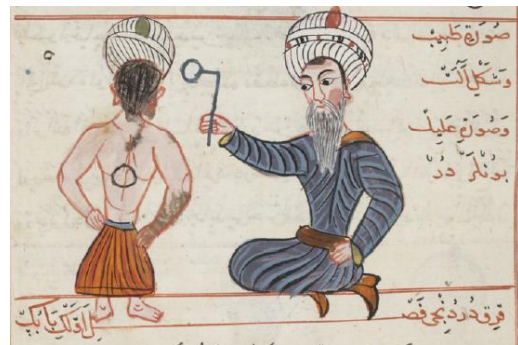 صورة طبيب
وشكل آلت
وصورة عليل
بونلر در
قرق دردنجى فصل اولكى بابك